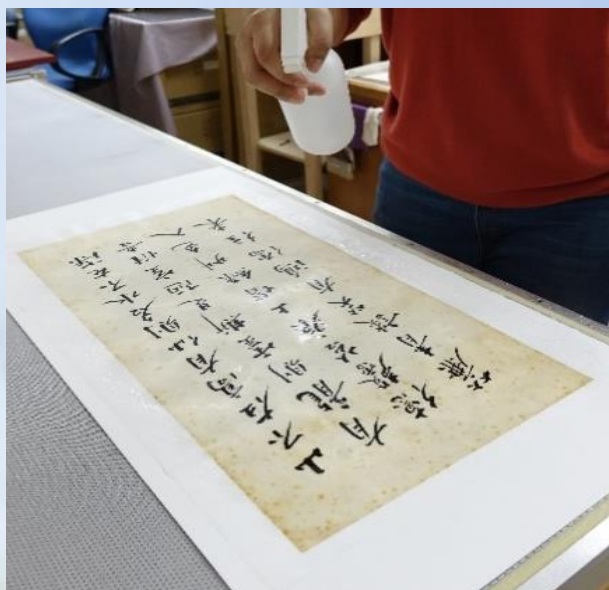 山不在高有仙則名水不在深
有龍則靈斯是陋室惟吾
德馨苔痕上階綠草色入
簾青談笑有鴻儒往來